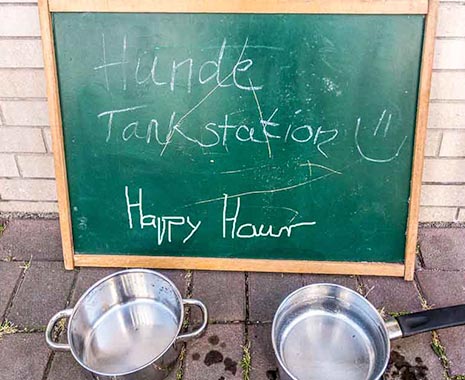 Hunde
Tankstation :)
Happy Hour